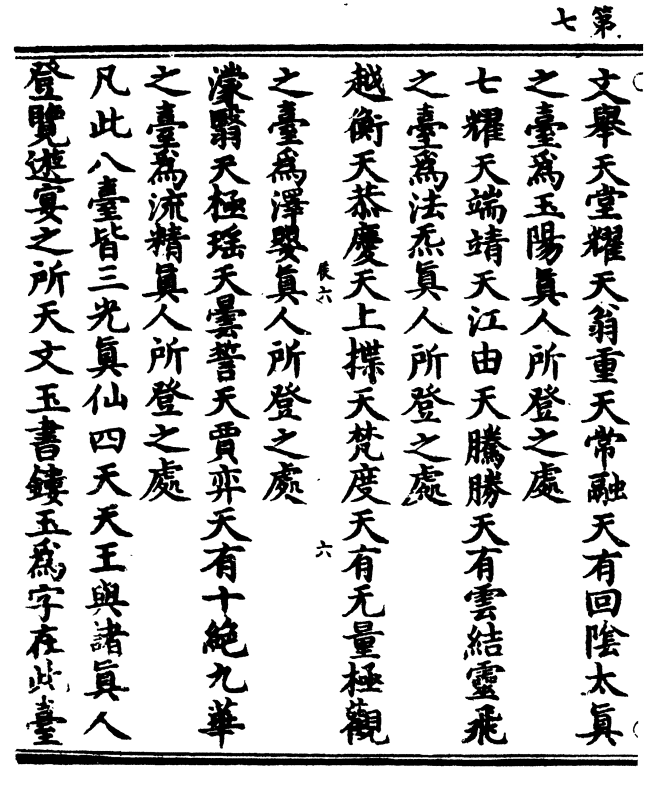 第七
文舉天堂耀天翁重天常融天有回陰太眞
之臺爲玉陽眞人所登之處
七耀天端靖天江由天騰勝天有雲結靈飛
之臺爲法炁眞人所登之處
越衡天恭慶天上揲天梵度天有无量極觀
六
之臺爲澤嬰眞人所登之處
濛翳天極瑶天曇誓天賈弈天有十絕九華
之臺爲流精眞人所登之處
凡此八臺皆三光眞仙四天天王與諸眞人
登覽遊宴之所天文玉書鏤玉爲字在此臺